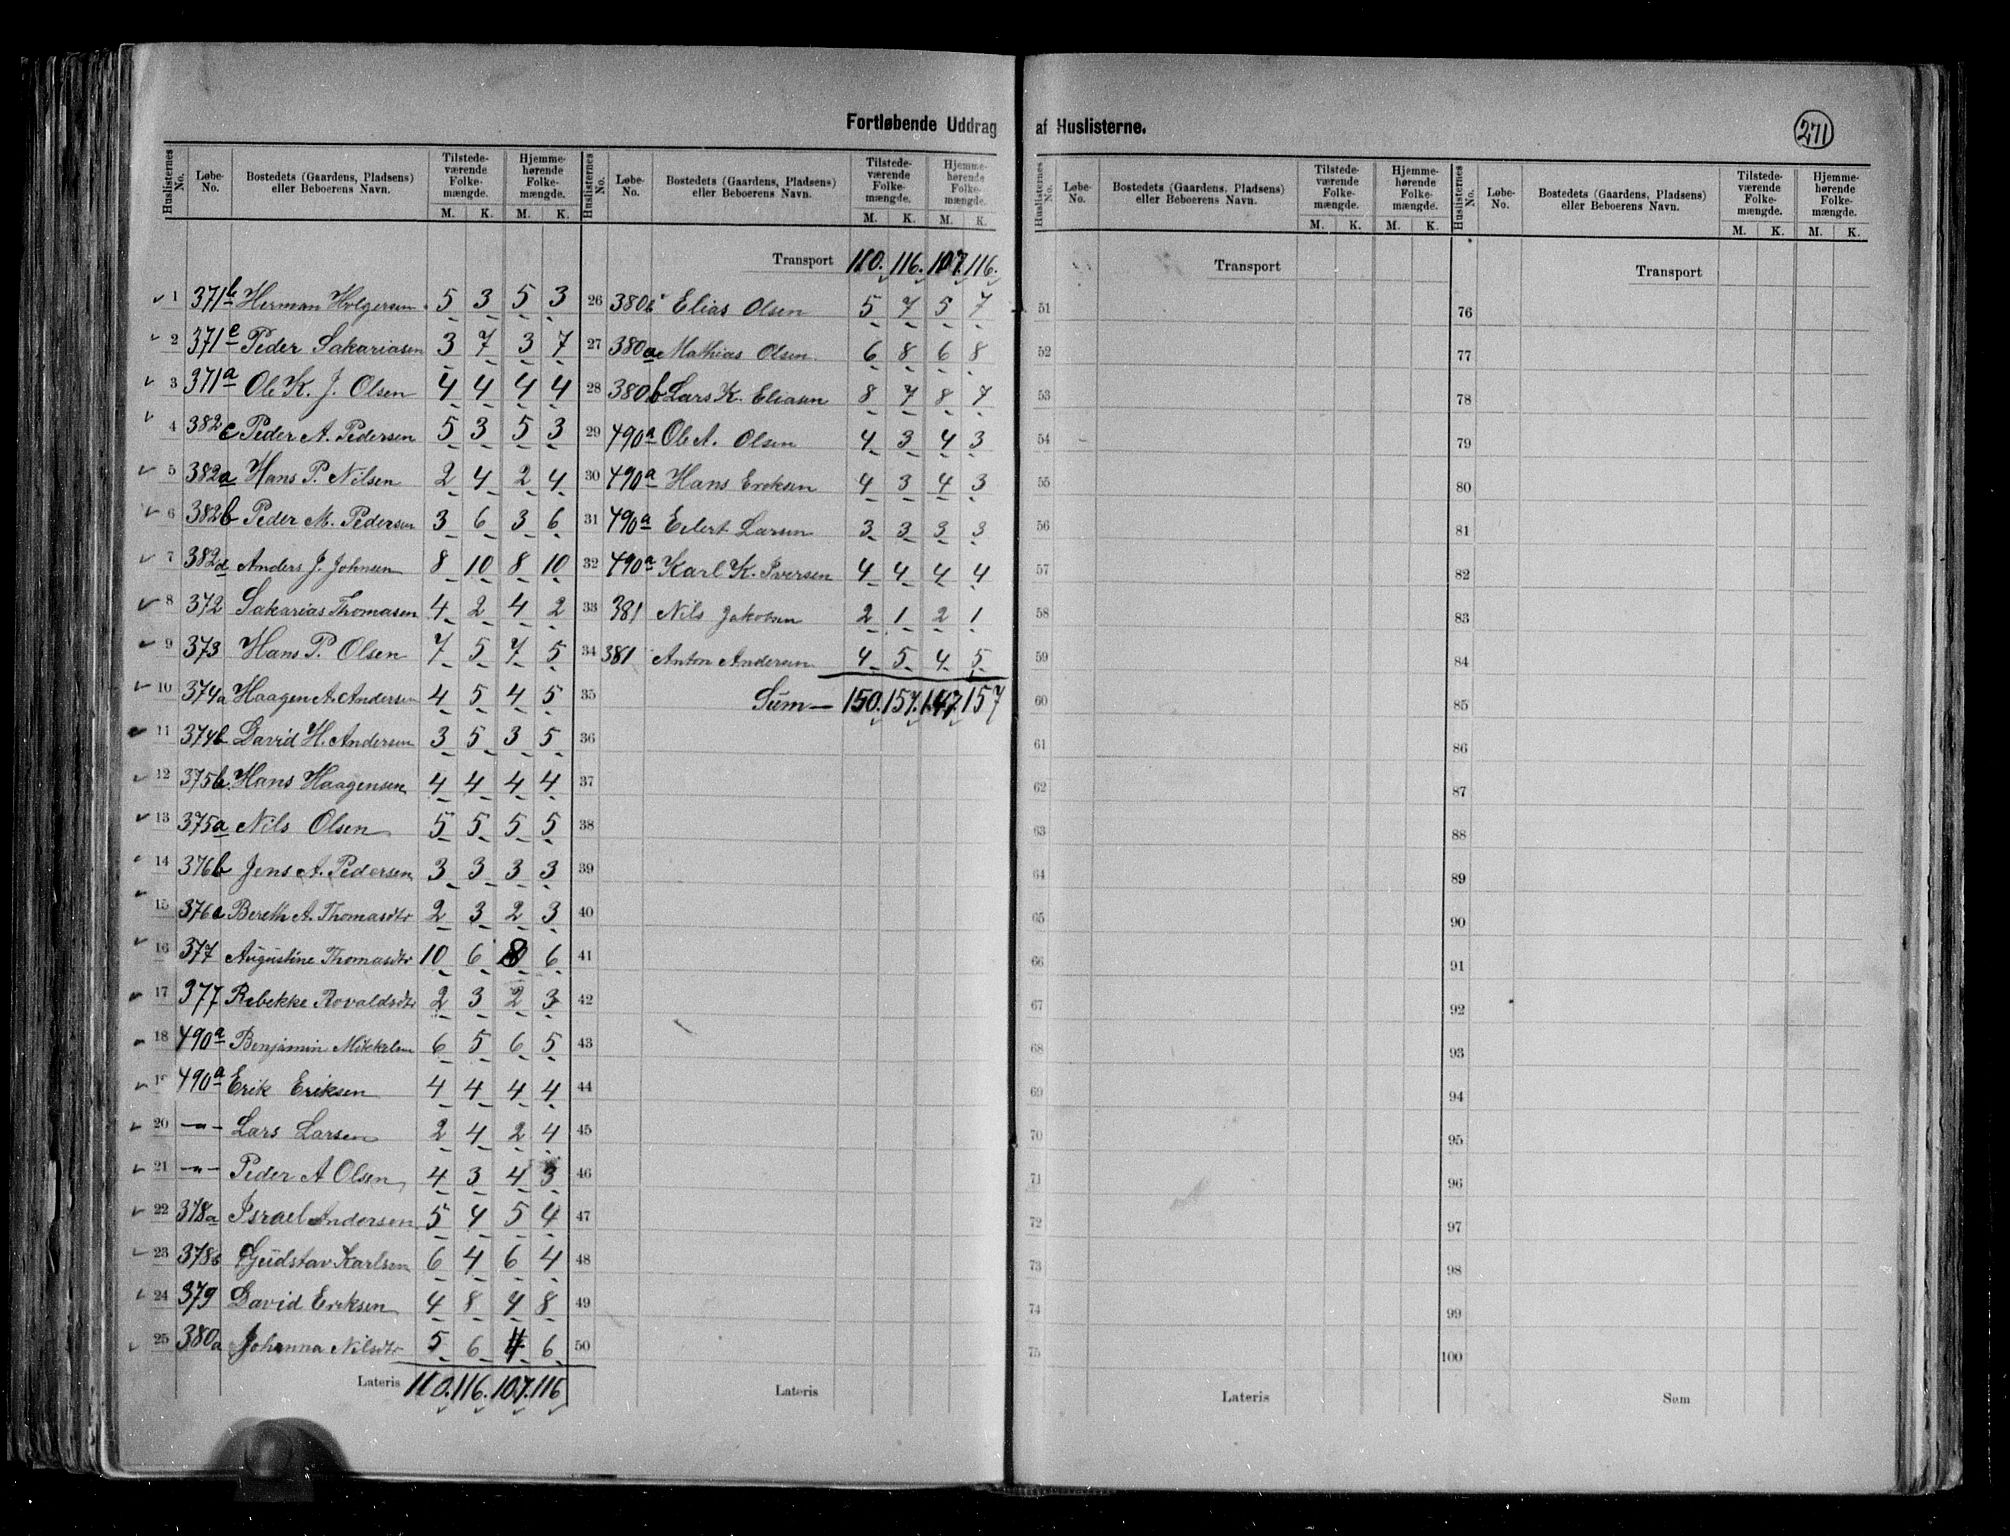 Fortløbende Uddrag af Huslisterne.
271
Huslisternes No. Løbe-No. Bostedets (Gaardens, Pladsens) eller Beboerens Navn. Tilstedeværende Folkemængde. M. K. Hjemmehørende Folkemængde. M. K.
1 371b Herman Holgersen 5 3 5 3
2 371c Peder Sakariasen 3 7 3 7
3 371a Ole K. J. Olsen 4 4 4 4
4 382c Peder A. Pedersen 5 3 5 3
5 382a Hans P. Nilsen 2 4 2 4
6 382b Peder M. Pedersen 3 6 3 6
7 382d Anders J. Johnsen 8 10 8 10
8 372 Sakarias Thomasen 4 2 4 2
9 373 Hans P. Olsen 7 5 7 5
10 374a Haagen A. Andersen 4 5 4 5
11 374b David H. Andersen 3 5 3 5
12 375b. Hans Haagensen 4 4 4 4
13 375a Nils Olsen 5 5 5 5
14 376b Jens A. Pedersen 3 3 3 3
15 376a Bereth A. Thomasdtr 2 3 2 3
16 377 Augustine Thomasdtr 10 6 8 6
17 377 Rebekke Rovaldsdtr 2 3 2 3
18 490a Benjamin Mikkelsen 6 5 6 5
19 490a Erik Eriksen 4 4 4 4
20 —"— Lars Larsen 2 4 2 4
21 —"— Peder A Olsen 4 3 4 3
22 378a Israel Andersen 5 4 5 4
23 378b Gudstav Karlsen 6 4 6 4
24 379 David Eriksen 4 8 4 8
25 380a Johanna Nilsdtr 5 6 4 6
Lateris 110. 116. 107. 116
Huslisternes No. Løbe-No. Bostedets (Gaardens, Pladsens) eller Beboerens Navn. Tilstedeværende Folkemængde. M. K. Hjemmehørende Folkemængde. M. K.
Transport 110. 116. 107. 116.
26 380b Elias Olsen 5 7 5 7
27 380a Mathias Olsen 6 8 6 8
28 380b Lars K. Eliasen 8 7 8 7
29 490a Ole A. Olsen 4 3 4 3
30 490a Hans Eriksen 4 3 4 3
31 490a Eilert Larsen 3 3 3 3
32 490a Karl K. Iversen 4 4 4 4
33 381 Nils Jakobsen 2 1 2 1
34 381 Anton Andersen 4 5 4 5
35 Sum— 150. 157. 147. 157
36
37
38
39
40
41
42
43
44
45
46
47
48
49
50
Lateris
Huslisternes No. Løbe-No. Bostedets (Gaardens, Pladsens) eller Beboerens Navn. Tilstedeværende Folkemængde. M. K. Hjemmehørende Folkemængde. M. K.
Transport
51
52
53
54
55
56
57
58
59
60
61
62
63
64
65
66
67
68
69
70
71
72
73
74
75
Lateris
Huslisternes No. Løbe-No. Bostedets (Gaardens, Pladsens) eller Beboerens Navn. Tilstedeværende Folkemængde. M. K. Hjemmehørende Folkemængde. M. K.
Transport
76
77
78
79
80
81
82
83
84
85
86
87
88
89
90
91
92
93
94
95
96
97
98
99
100
Sum